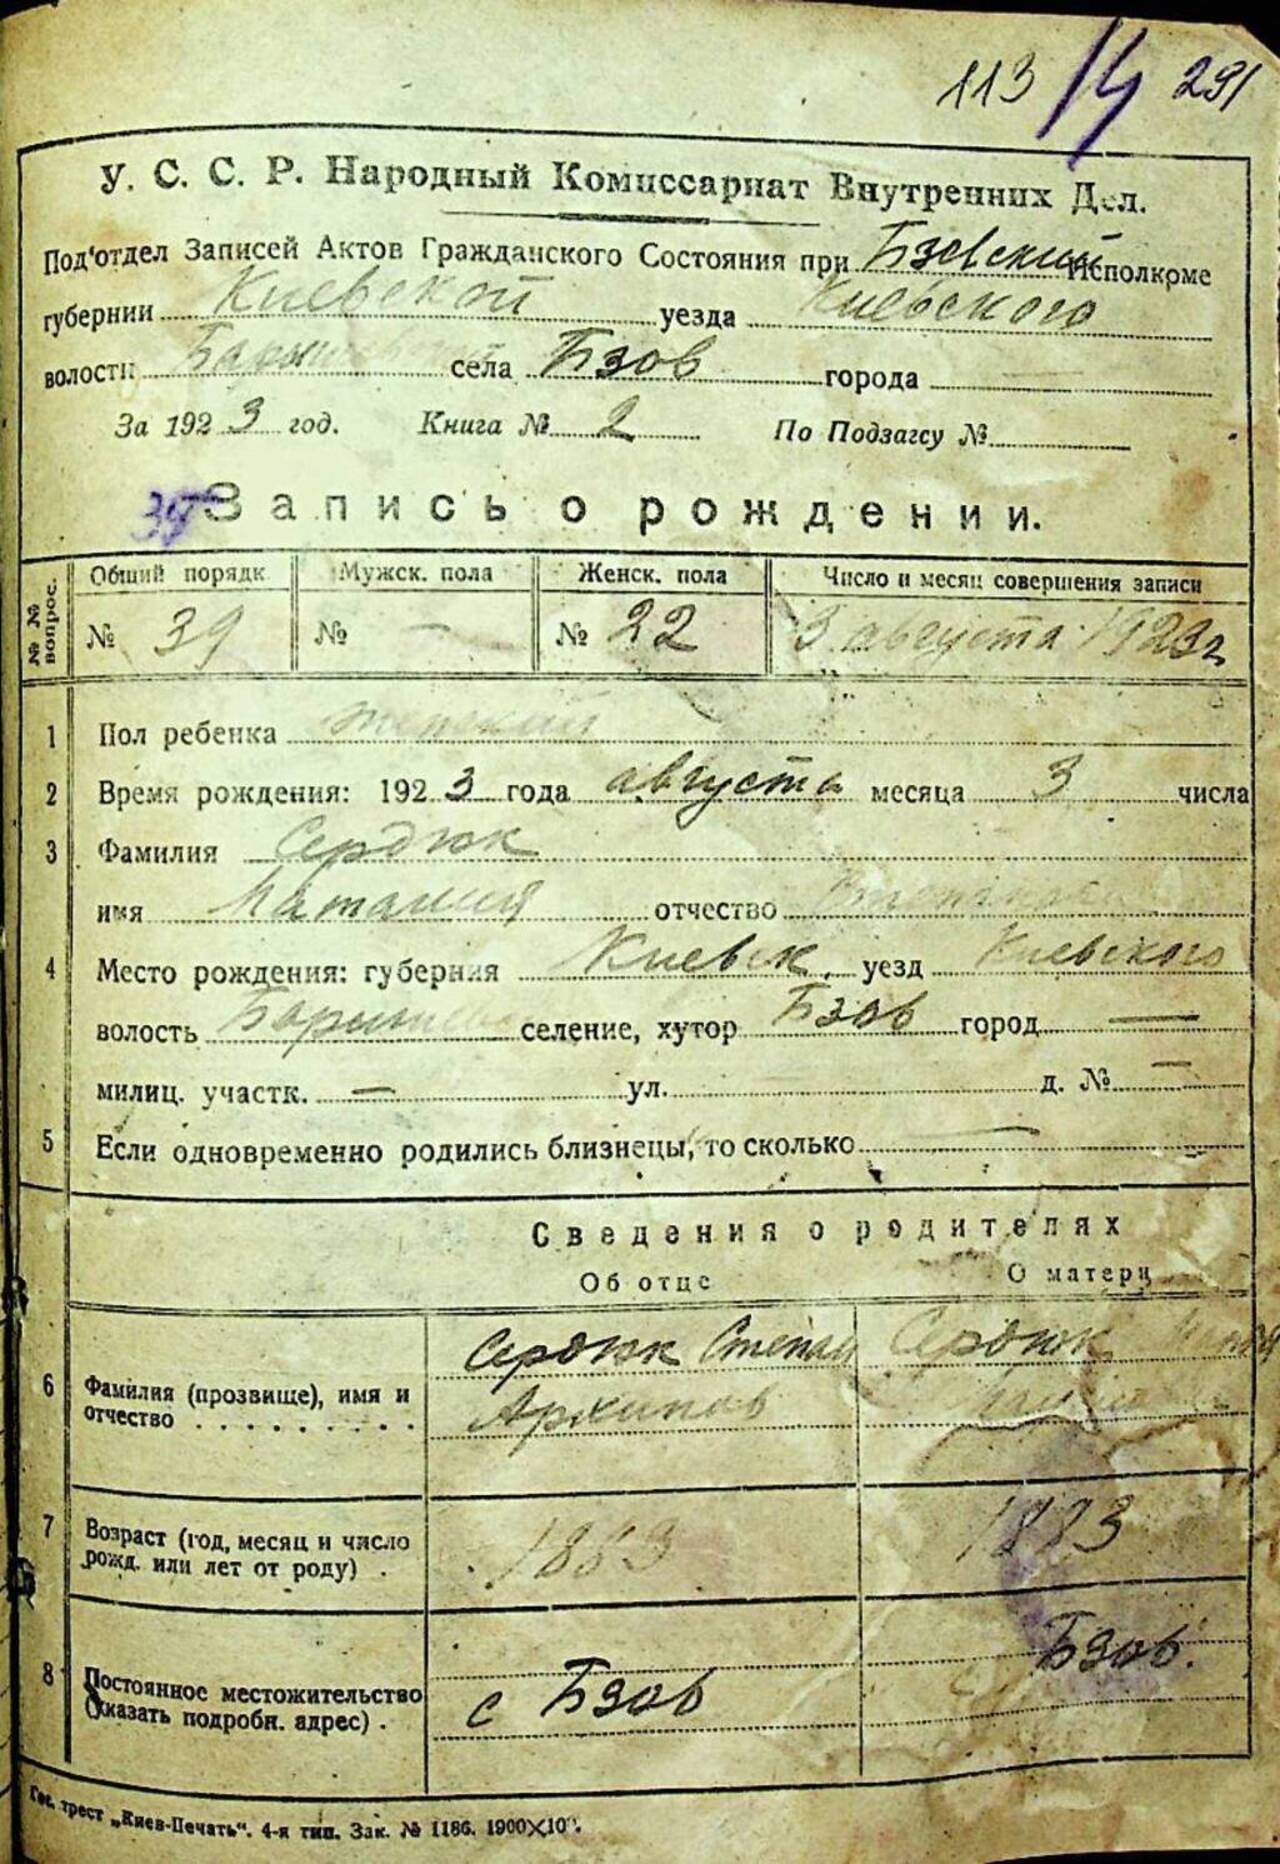 113 14 291
У. С. С. Р. Народный Комиссариат Внутренних Дел.
Под'отдел Записей Актов Гражданского Состояния при Бзовский Исполкоме
губернии Киевской уезда Киевского
волости села Бзов города —
За 1923 год. Книга № 2 По Подзагсу №
39 Запись о рождении.
№№ вопрос. Общий порядк. Мужск. пола Женск. пола Число и месяц совершения записи
№ 39 № — № 22 3 августа 1923 г
1 Пол ребенка женский
2 Время рождения: 1923 года августа месяца 3 числа
3 Фамилия Сердюк
имя Наталия отчество
4 Место рождения: губерния Киевск. уезд Киевского
волость селение, хутор Бзов город —
милиц. участк. — ул. д. № —
5 Если одновременно родились близнецы, то сколько —
Сведения о родителях
Об отце О матери
6 Фамилия (прозвище), имя и отчество . . . . . . . . .
Сердюк Степан
Архипов
Сердюк
7 Возраст (год, месяц и число рожд. или лет от роду) .
1883
8 Постоянное местожительство (указать подробн. адрес) .
с Бзов
Бзов.
Гос. трест „Киев-Печать". 4-я тип. Зак. № 1186. 1900×10